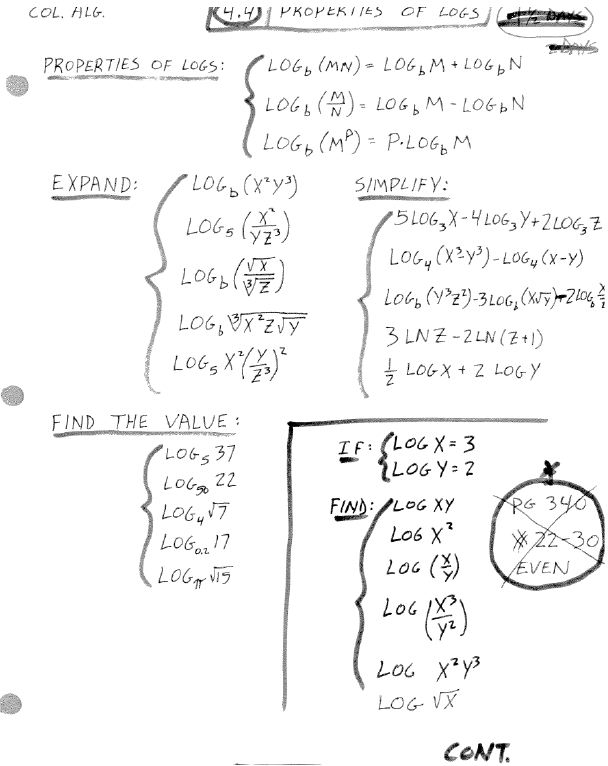 COL. ALG.
4.4 PROPERTIES OF LOGS
1½ DAYS
DAYS
PROPERTIES OF LOGS:
LOG_b (MN) = LOG_b M + LOG_b N
LOG_b (M/N) = LOG_b M - LOG_b N
LOG_b (M^P) = P·LOG_b M
EXPAND:
LOG_b (X²Y³)
LOG_5 (X²/YZ³)
LOG_b (√X/∛Z)
LOG_b ∛X²Z√Y
LOG_5 X²(Y/Z³)²
SIMPLIFY:
5LOG_3 X - 4LOG_3 Y + 2LOG_3 Z
LOG_4 (X³-Y³) - LOG_4 (X-Y)
LOG_b (Y³Z²) - 3LOG_b (X√Y) - 2LOG_b X/Z
3 LN Z - 2 LN (Z+1)
1/2 LOG X + 2 LOG Y
FIND THE VALUE:
LOG_5 37
LOG_50 22
LOG_4 √7
LOG_0.2 17
LOG_π √15
IF: LOG X = 3
LOG Y = 2
FIND: LOG XY
LOG X²
LOG (X/Y)
LOG (X³/Y²)
LOG X²Y³
LOG √X
PG 340
22-30
EVEN
CONT.